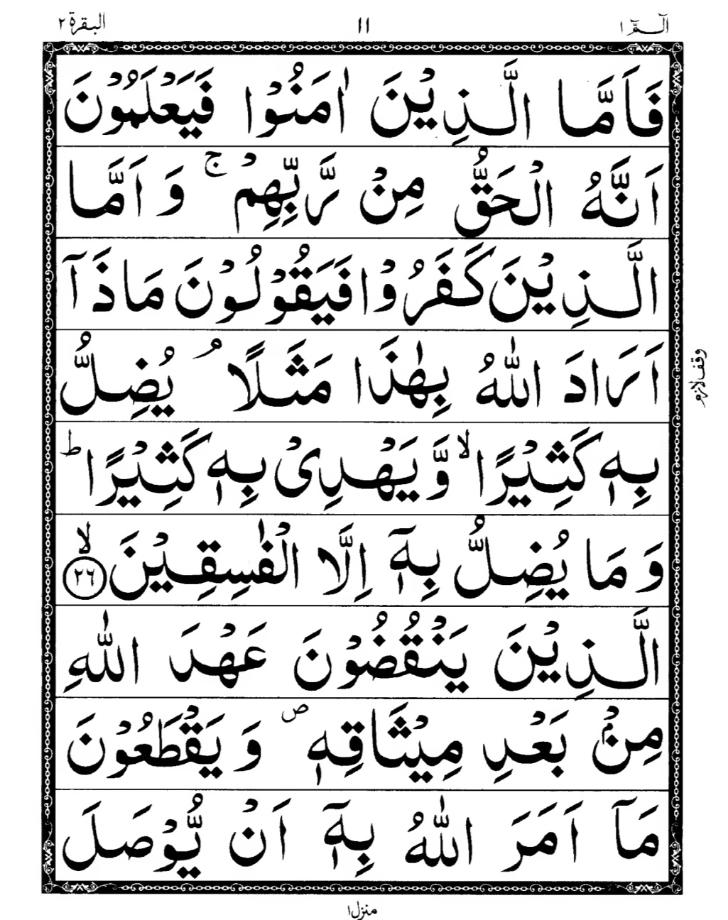 الٓـمّٓ ١ ١١ البقرة ٢
فَاَمَّا الَّذِيْنَ اٰمَنُوْا فَيَعْلَمُوْنَ
اَنَّهُ الْحَقُّ مِنْ رَّبِّهِمْ ۚ وَاَمَّا
الَّذِيْنَ كَفَرُوْا فَيَقُوْلُوْنَ مَاذَآ
اَرَادَ اللّٰهُ بِهٰذَا مَثَلًا ۘ يُضِلُّ
بِهٖ كَثِيْرًا ۙ وَّيَهْدِىْ بِهٖ كَثِيْرًا ؕ
وَمَا يُضِلُّ بِهٖٓ اِلَّا الْفٰسِقِيْنَ ۙ ٢٦
الَّذِيْنَ يَنْقُضُوْنَ عَهْدَ اللّٰهِ
مِنْۢ بَعْدِ مِيْثَاقِهٖ ۪ وَيَقْطَعُوْنَ
مَآ اَمَرَ اللّٰهُ بِهٖٓ اَنْ يُّوْصَلَ
وقف لازم
منزل ١